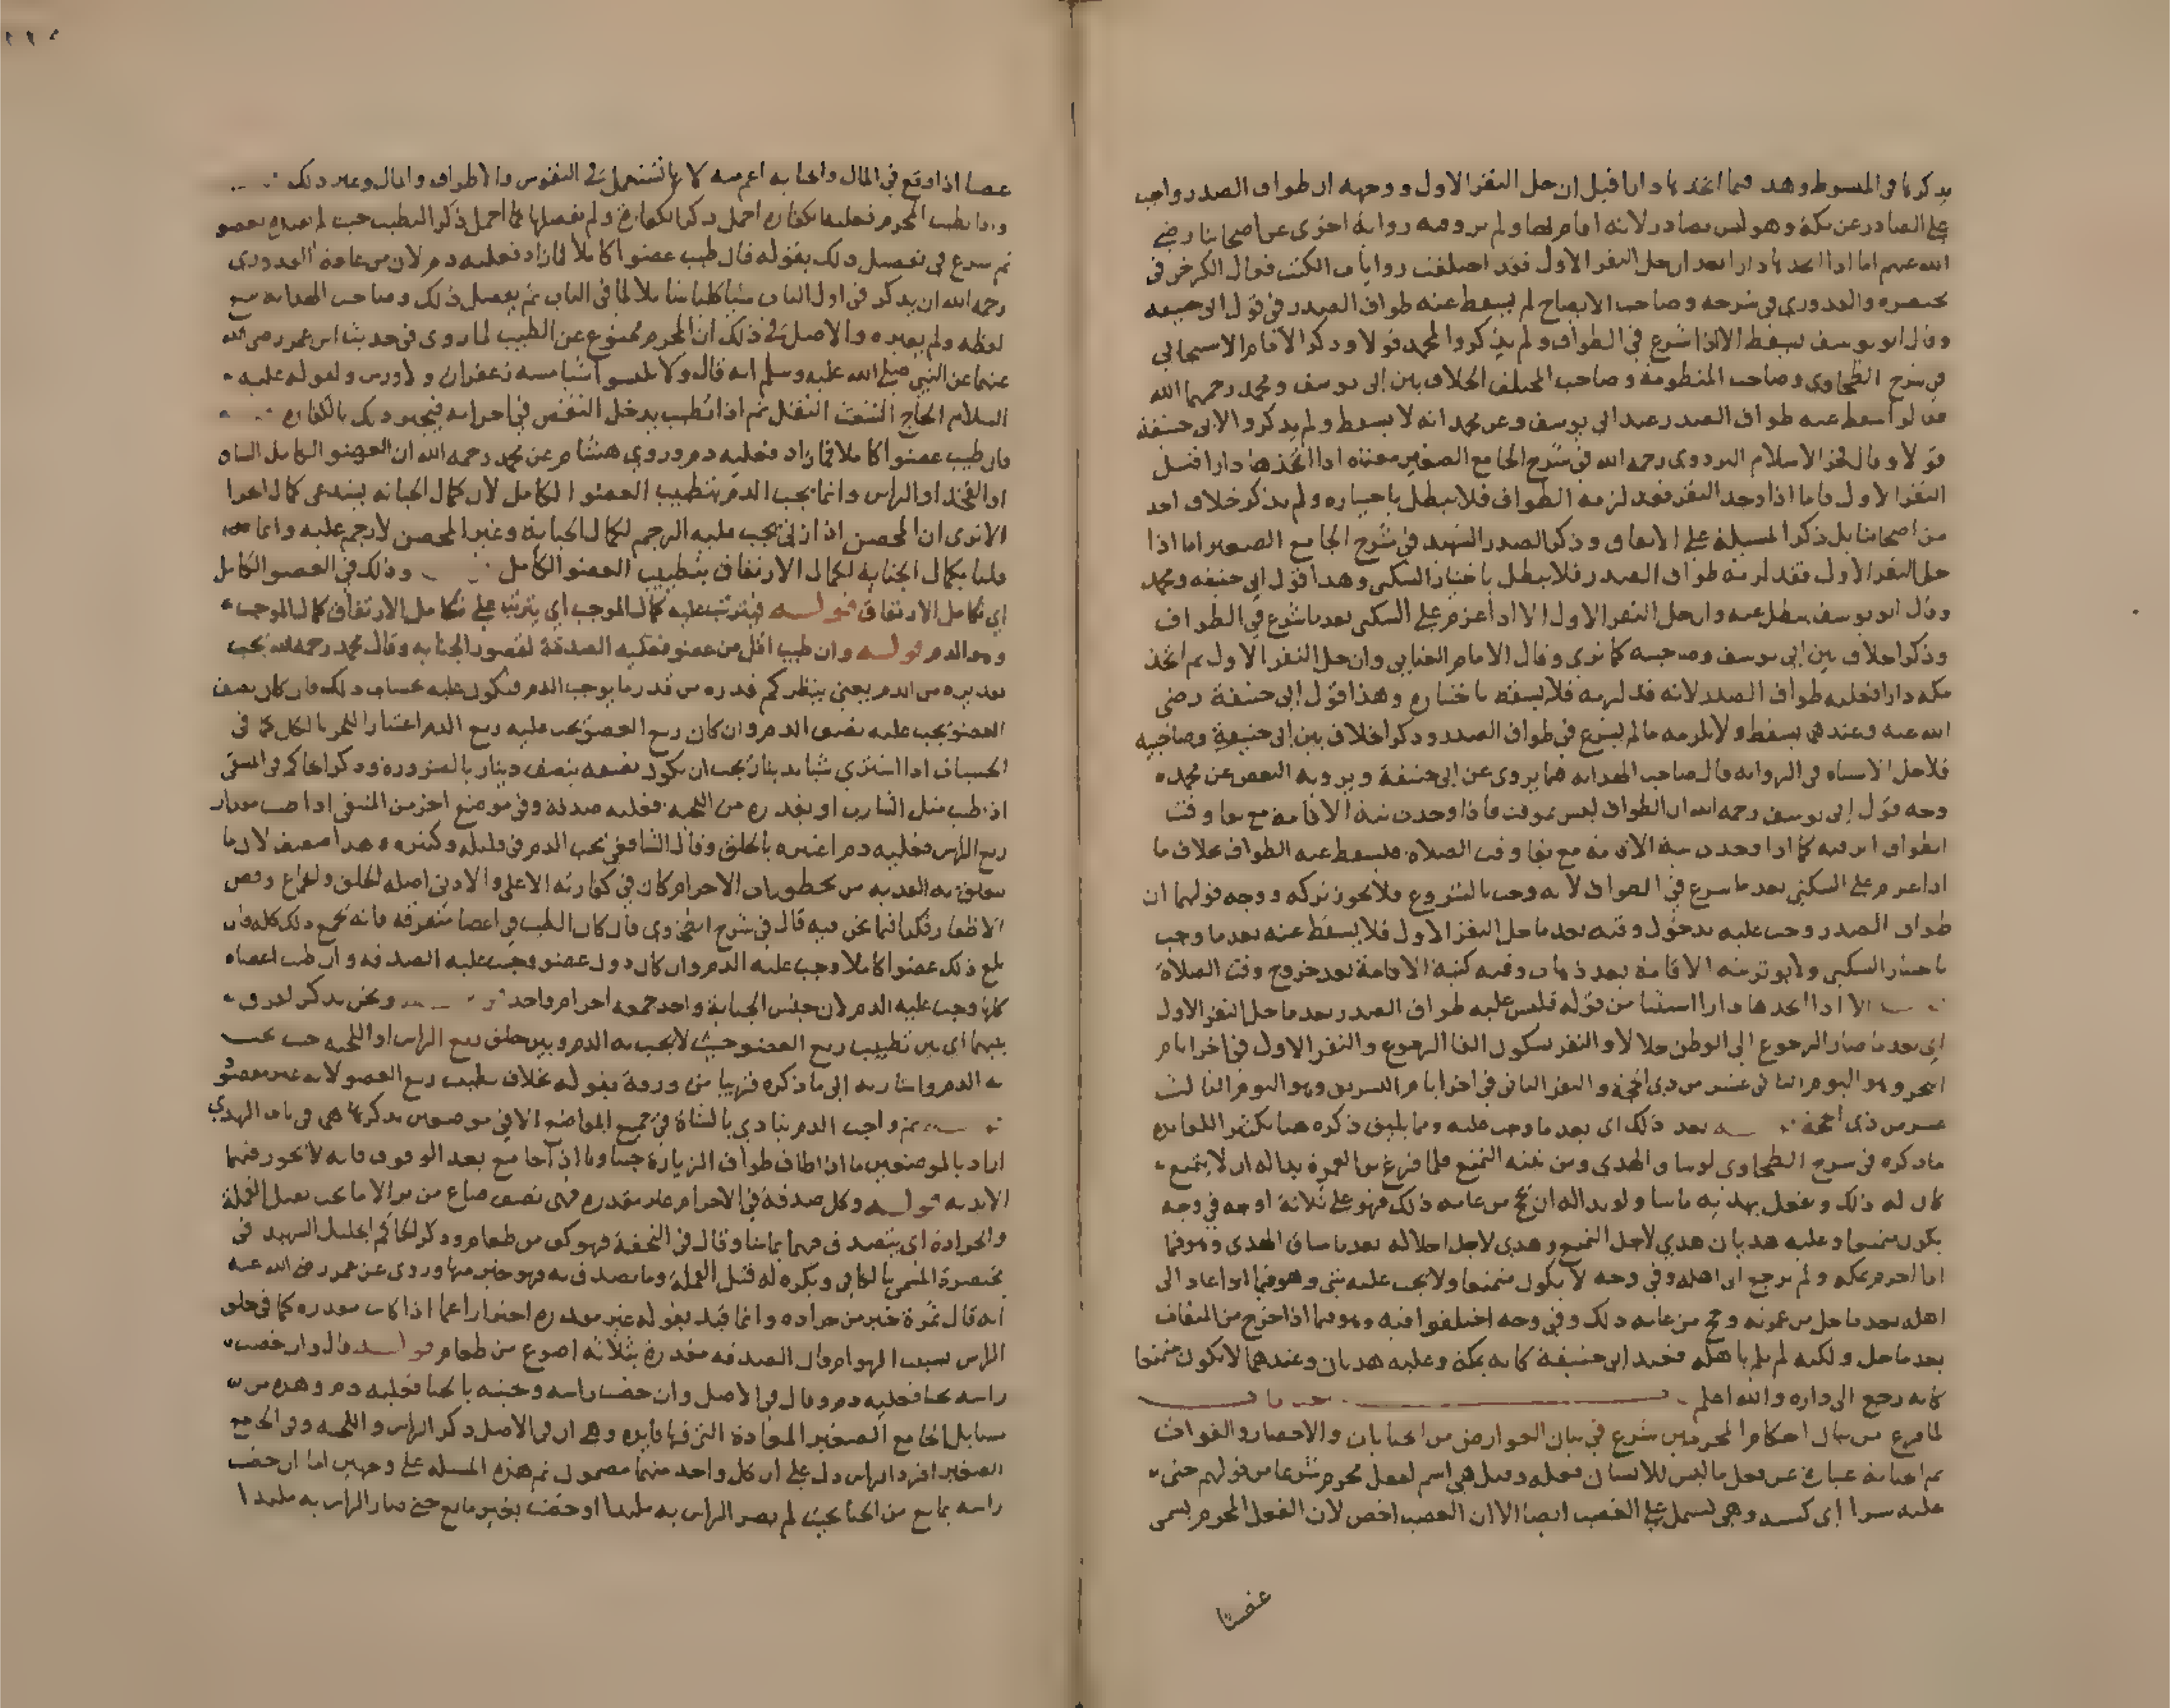 يذكرها في المبسوط وهذا فيما اتخذها دارا قبل ان حل النفر الاول ووجهه ان طواف الصدر واجب
على الصادر عن مكة وهو ليس بصادر لانه اقام بها ولم يرو فيه رواية اخرى عن اصحابنا رضي
الله عنهم اما اذا اتخذها دارا بعد ان حل النفر الاول فقد اختلفت روايات الكتب فقال الكرخي في
مختصره والقدوري في شرحه وصاحب الايضاح لم يسقط عنه طواف الصدر في قول ابي حنيفة
وقال ابو يوسف يسقط الا اذا شرع في الطواف ولم يذكروا لمحمد قولا وذكر الامام الاسبيجابي
في شرح الطحاوي وصاحب المنظومة وصاحب المختلف الخلاف بين ابي يوسف ومحمد رحمهما الله
فقالوا يسقط عنه طواف الصدر عند ابي يوسف وعن محمد انه لا يسقط ولم يذكروا لابي حنيفة
قولا وقال فخر الاسلام البزدوي رحمه الله في شرح الجامع الصغير معناه اذا اتخذها دارا قبل
النفر الاول فاما اذا وجد النفر فقد لزمه الطواف فلا يبطل باختياره ولم يذكر خلاف احد
من اصحابنا بل ذكر المسيلة على الاتفاق وذكر الصدر الشهيد في شرح الجامع الصغير اما اذا
حل النفر الاول فقد لزمه طواف الصدر فلا يبطل باختيار السكنى وهذا قول ابي حنيفة ومحمد
وقال ابو يوسف يبطل عنه وان حل النفر الاول الا اذا عزم على السكنى بعد ما شرع في الطواف
وذكر اخلاف بين ابي يوسف وصاحبيه كما نرى وقال الامام العتابي وان حل النفر الاول ثم اتخذ
مكة دارا فعليه طواف الصدر لانه قد لزمه فلا يسقط باختياره وهذا قول ابي حنيفة رضي
الله عنه وعندهما يسقط ولا يلزمه ما لم يشرع في طواف الصدر وذكر اخلاف بين ابي حنيفة وصاحبيه
فلاجل الاشتباه في الرواية قال صاحب الهداية فيما يروى عن ابي حنيفة ويرويه البعض عن محمد
وجه قول ابي يوسف رحمه الله ان الطواف ليس بموقت فاذا وجدت نية الاقامة مع بقا وقت
الطواف اثر فيه كما اذا وجدت نية الاقامة مع بقا وقت الصلاة فيسقط عنه الطواف بخلاف ما
اذا عزم على السكنى بعد ما شرع في الطواف لانه وجب بالشروع فلا يجوز تركه ووجه قولهما ان
طواف الصدر وجب عليه بدخول وقته بعد ما حل النفر الاول فلا يسقط عنه بعد ما وجب
باختيار السكنى ولا يوثر نية الاقامة بعد ذهاب وقته كنية الاقامة بعد خروج وقت الصلاة
الا اذا اتخذها دارا استثنا من قوله فليس عليه طواف الصدر بعد ما حل النفر الاول
اي بعد ما صار الرجوع الى الوطن حلالا والنفر بسكون الفا الرجوع والنفر الاول في اخر ايام
النحر وهو اليوم الثاني عشر من ذي الحجة والنفر الثاني في اخر ايام التشريق وهو اليوم الثالث
عشر من ذي الحجة بعد ذلك اي بعد ما وجب عليه ومما يليق ذكره هنا تكثيرا للفايدة
ما ذكره في شرح الطحاوي لو ساق الهدي ومن نيته التمتع فلما فرغ من العمرة بدا له ان لا يتمتع
كان له ذلك ويفعل بهديه ما شا ولو بدا له ان يحج من عامه ذلك فهو على ثلاثة اوجه في وجه
يكون متمتعا وعليه هديان هدي لاجل التمتع وهدي لاجل احلاله بعد ما ساق الهدي وهو فيما
اذا احرم بمكة ولم يرجع الى اهله وفي وجه لا يكون متمتعا ولا يجب عليه شي وهو فيما اذا عاد الى
اهله بعد ما حل من عمرته وحج من عامه ذلك وفي وجه اختلفوا فيه وهو فيما اذا خرج من الميقات
بعد ما حل ولكنه لم يلم باهله فعند ابي حنيفة كانه بمكة وعليه هديان وعندهما لا يكون متمتعا
كانه رجع الى داره والله اعلم
لما فرغ من بيان احكام المحرمين شرع في بيان العوارض من الجنايات والاحصار والفوات
ثم الجناية عبارة عن فعل ما ليس للانسان فعله وقيل هي اسم لفعل محرم شرعا من قولهم جنى
عليه شرا اي كسبه وهي تشمل على الغصب ايضا الا ان الغصب اخص لان الفعل المحرم يسمى
غصبا
غصبا اذا وقع في المال والجناية اعم منه لانها تستعمل في النفوس والاطراف والمال وغير ذلك
واذا تطيب المحرم فعليه الكفارة اجمل ذكر الكفارة ولم يفصلها كما اجمل ذكر التطيب حيث لم يقيده بعضو
ثم شرع في تفصيل ذلك بقوله فان طيب عضوا كاملا فما زاد فعليه دم لان من عادة القدوري
رحمه الله ان يذكر في اول الباب شيا كليا شاملا لما في الباب ثم يفصل ذلك وصاحب الهداية تبع
لفظه ولم يغيره والاصل في ذلك ان المحرم ممنوع عن الطيب لما روى في حديث ابن عمر رضي الله
عنهما عن النبي صلى الله عليه وسلم انه قال ولا تلبسوا شيا مسه زعفران ولا ورس ولقوله عليه
السلام الحاج الشعث التفل ثم اذا تطيب يدخل النقص في احرامه فيجبر ذلك بالكفارة
فان طيب عضوا كاملا فما زاد فعليه دم وروى هشام عن محمد رحمه الله ان العضو الكامل الساق
او الفخذ او الراس وانما يجب الدم بتطييب العضو الكامل لان كمال الجناية يستدعي كمال الجزا
الا ترى ان المحصن اذا زنى يجب عليه الرجم لكمال الجناية وغير المحصن لا رجم عليه وانما
قلنا بكمال الجناية لكمال الارتفاق بتطييب العضو الكامل وذلك في العضو الكامل
اي تكامل الارتفاق قوله فيترتب عليه كمال الموجب اي يترتب على تكامل الارتفاق كمال الموجب
وهو الدم قوله وان طيب اقل من عضو فعليه الصدقة لقصور الجناية وقال محمد رحمه الله يجب
بقدره من الدم يعني ينظر كم قدره من قدر ما يوجب الدم فيكون عليه بحساب ذلك فان كان نصف
العضو يجب عليه نصف الدم وان كان ربع العضو يجب عليه ربع الدم اعتبارا للجزء بالكل كما في
الحساب اذا اشترى شيا بدينار يجب ان يكون نصفه بنصف دينار بالضرورة وذكر الحاكم في المنتقى
اذا طيب مثل الشارب او بقدره من اللحية فعليه صدقة وفي موضع اخر من المنتقى اذا طيب مقدار
ربع الراس فعليه دم اعتبره بالحلق وقال الشافعي يجب الدم في قليله وكثيره وهذا ضعيف لان ما
يتعلق به الفدية من محظورات الاحرام كان في كفارته الاعلى والادنى اصله الحلق والجماع وقص
الاظفار فكذا فيما نحن فيه قال في شرح الطحاوي فان كان الطيب في اعضا متفرقة فانه يجمع ذلك كله فان
بلغ ذلك عضوا كاملا وجب عليه الدم وان كان دون عضو وجبت عليه الصدقة وان طيب اعضاه
كلها وجب عليه الدم لان جنس الجناية واحد جمعه احرام واحد ونحن نذكر الفرق
بينهما اي بين تطييب ربع العضو حيث لا يجب به الدم وبين حلق ربع الراس او اللحية حيث يجب
به الدم واشار به الى ما ذكره قريبا من ورقة بقوله بخلاف تطييب ربع العضو لانه غير مقصود
ثم واجب الدم يتادى بالشاة في جميع المواضع الا في موضعين نذكرهما في باب الهدي
اراد بالموضعين ما اذا طاف طواف الزيارة جنبا وما اذا جامع بعد الوقوف فانه لا يجوز فيهما
الا بدنة قوله وكل صدقة في الاحرام غير مقدرة فهي نصف صاع من بر الا ما يجب بقتل القملة
والجرادة اي يتصدق فيهما بما شا وقال في التحفة فهو كف من طعام وذكر الحاكم الجليل الشهيد في
مختصره المسمى بالكافي ويكره له قتل القملة وما تصدق به فهو خير منها وروى عن عمر رضي الله عنه
انه قال تمرة خير من جرادة وانما قيد بقوله غير مقدرة احترازا عما اذا كانت مقدرة كما في حلق
الراس بسبب الهوام فان الصدقة مقدرة بثلاثة اصوع من طعام قوله قال وان خضب
راسه بحنا فعليه دم وقال في الاصل وان خضب راسه ولحيته بالحنا فعليه دم وهذه من
مسايل الجامع الصغير المعادة التي فيها فايدة وهي ان في الاصل ذكر الراس واللحية وفي الجامع
الصغير افرد الراس دل على ان كل واحد منهما مضمون ثم هذه المسيلة على وجهين اما ان خضب
راسه بمايع من الحنا بحيث لم يصر الراس به ملبدا او خضب بغير مايع حتى صار الراس به ملبدا